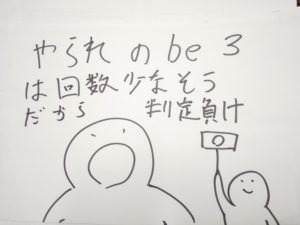 やられ の be 3
は回数少なそう
だから 判定負け